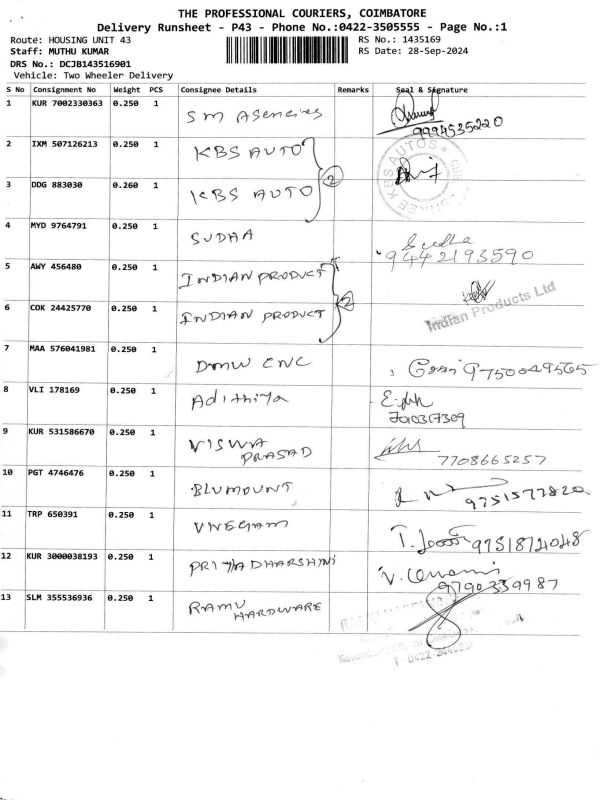 THE PROFESSIONAL COURIERS, COIMBATORE
Delivery Runsheet - P43 - Phone No.:0422-3505555 - Page No.:1
Route: HOUSING UNIT 43 RS No.: 1435169
Staff: MUTHU KUMAR RS Date: 28-Sep-2024
DRS No.: DCJB143516901
Vehicle: Two Wheeler Delivery
S No Consignment No Weight PCS Consignee Details Remarks Seal & Signature
1 KUR 7002330363 0.250 1 SM Agencies
9994535220
2 IXM 507126213 0.250 1 KBS AUTO
KBS AUTOS
3 DDG 883030 0.260 1 KBS AUTO 2
4 MYD 9764791 0.250 1 SUDHA Sudha
9442193590
5 AWY 456480 0.250 1 INDIAN PRODUCT
2
Indian Products Ltd
6 COK 24425770 0.250 1 INDIAN PRODUCT
7 MAA 576041981 0.250 1 DMW CNC 9750049565
8 VLI 178169 0.250 1 Adithiya
7010317309
9 KUR 531586670 0.250 1 VISWA
PRASAD 7708665257
10 PGT 4746476 0.250 1 BLUMOUNT 9751577820
11 TRP 650391 0.250 1 VNEGAM T. 9751874048
12 KUR 3000038193 0.250 1 PRIYADHARSHINI V.
9790339987
13 SLM 355536936 0.250 1 RAMU
HARDWARE